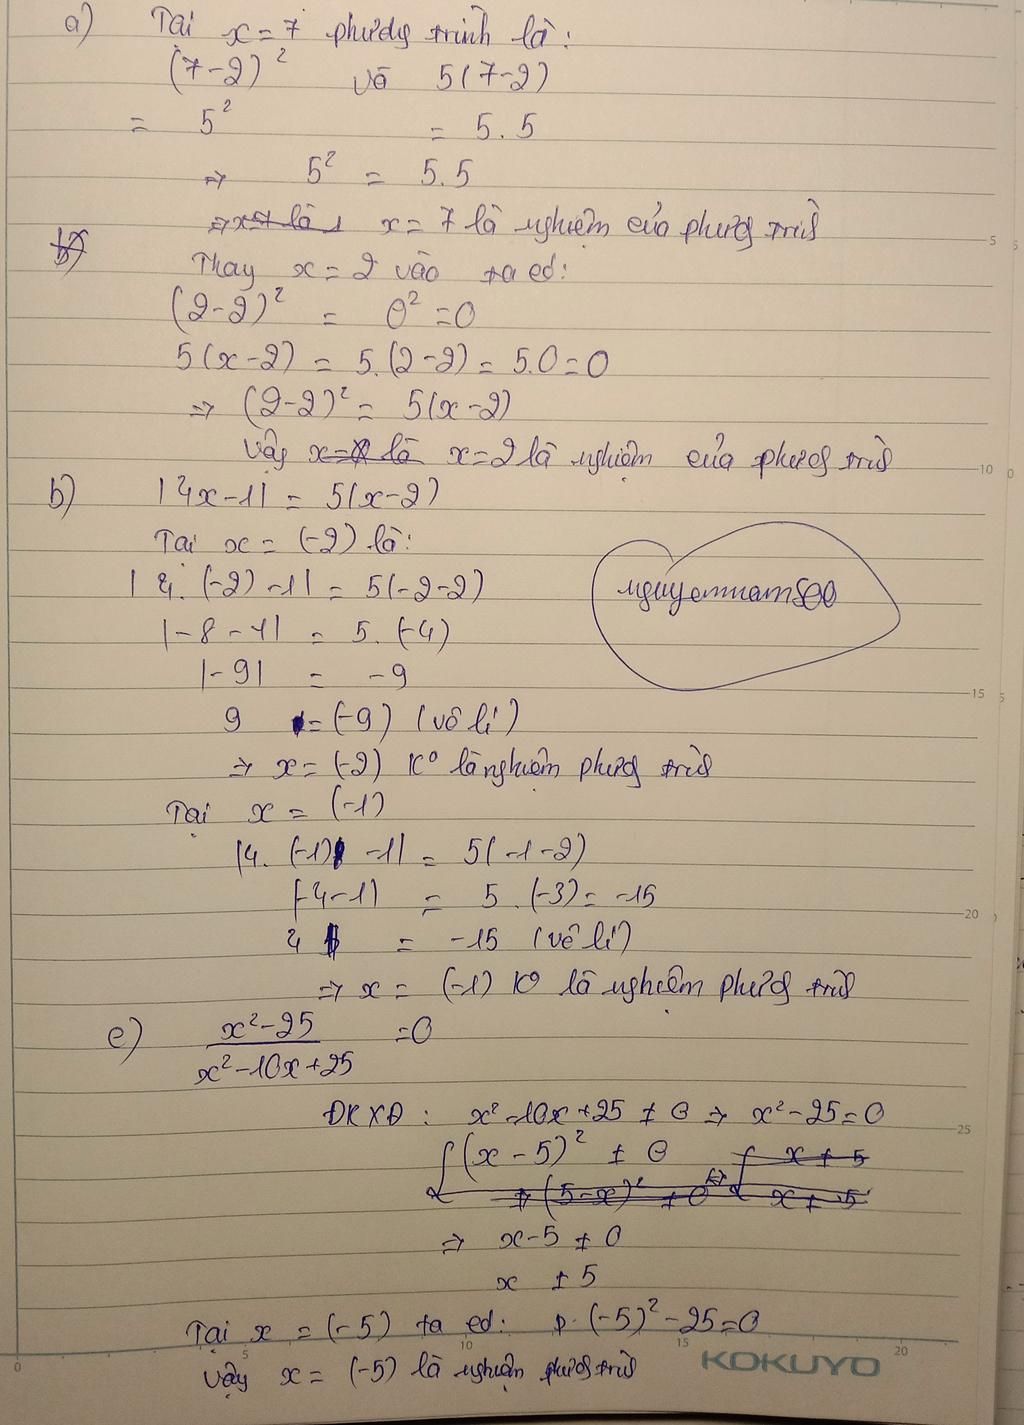 a) Tại x = 7 phương trình là:
(7-2)² và 5(7-2)
= 5² = 5.5
=> 5² = 5.5
x = 7 là nghiệm của phương trình
Thay x = 2 vào ta có:
(2-2)² = 0² = 0
5(x-2) = 5.(2-2) = 5.0 = 0
=> (2-2)² = 5(x-2)
Vậy x = 2 là nghiệm của phương trình
b) |4x-1| = 5(x-2)
Tại x = (-2) là:
|4.(-2)-1| = 5(-2-2)
nguyennam500
|-8-1| = 5.(-4)
|-9| = -9
9 = (-9) (vô lí)
=> x = (-2) K° là nghiệm phương trình
Tại x = (-1)
|4.(-1) -1| = 5(-1-2)
|-4-1| = 5.(-3) = -15
4 = -15 (vô lí)
=> x = (-1) K° là nghiệm phương trình
c) x²-25 / x²-10x+25 = 0
ĐKXĐ: x²-10x+25 ≠ 0 => x²-25=0
(x-5)² ≠ 0
=> x-5 ≠ 0
x ≠ 5
Tại x = (-5) ta có: (-5)²-25=0
Vậy x = (-5) là nghiệm phương trình
KOKUYO